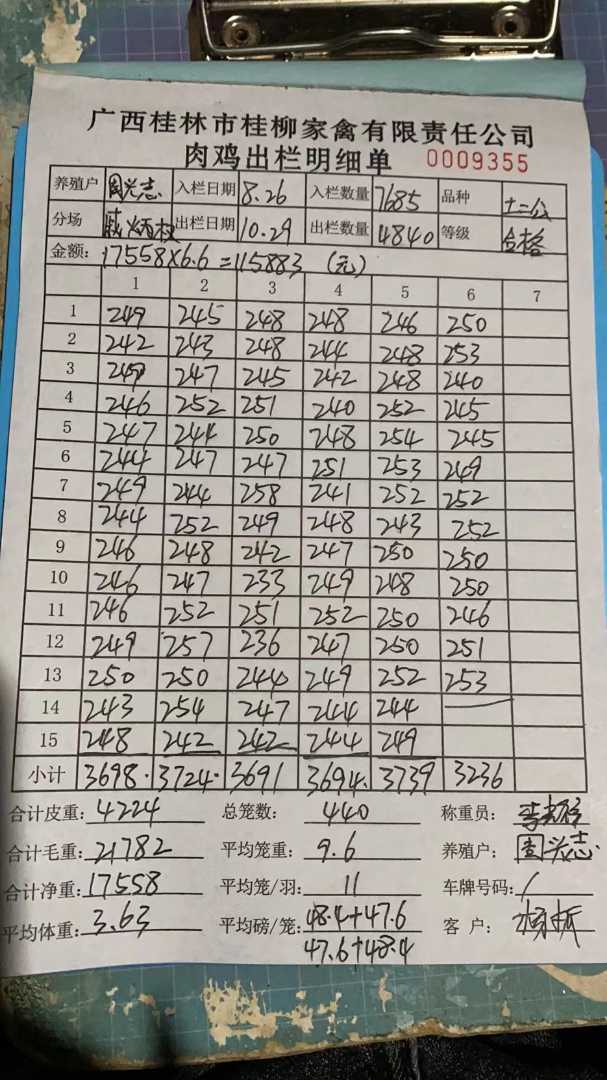 广西桂林市桂柳家禽有限责任公司
肉鸡出栏明细单 0009355
养殖户 周兴志 入栏日期 8.26 入栏数量 7685 品种
分场 出栏日期 10.29 出栏数量 4840 等级 合格
金额: 17558×6.6=115883 (元)
1 2 3 4 5 6 7
1 249 245 248 248 246 250
2 242 243 248 244 248 253
3 249 247 245 242 248 240
4 246 252 251 240 252 245
5 247 244 250 248 254 245
6 244 247 247 251 253 249
7 249 244 258 241 252 252
8 244 252 249 248 243 252
9 246 248 242 247 250 250
10 246 247 233 249 248 250
11 246 252 251 252 250 246
12 249 257 236 247 250 251
13 250 250 244 249 252 253
14 243 254 247 244 244
15 248 242 242 244 249
小计 3698. 3724. 3691 3694. 3739 3236
合计皮重: 4224 总笼数: 440 称重员:
合计毛重: 21782 平均笼重: 9.6 养殖户: 周兴志
合计净重: 17558 平均笼/羽: 11 车牌号码: /
平均体重: 3.63 平均磅/笼: 48.4+47.6 客 户:
47.6+48.4